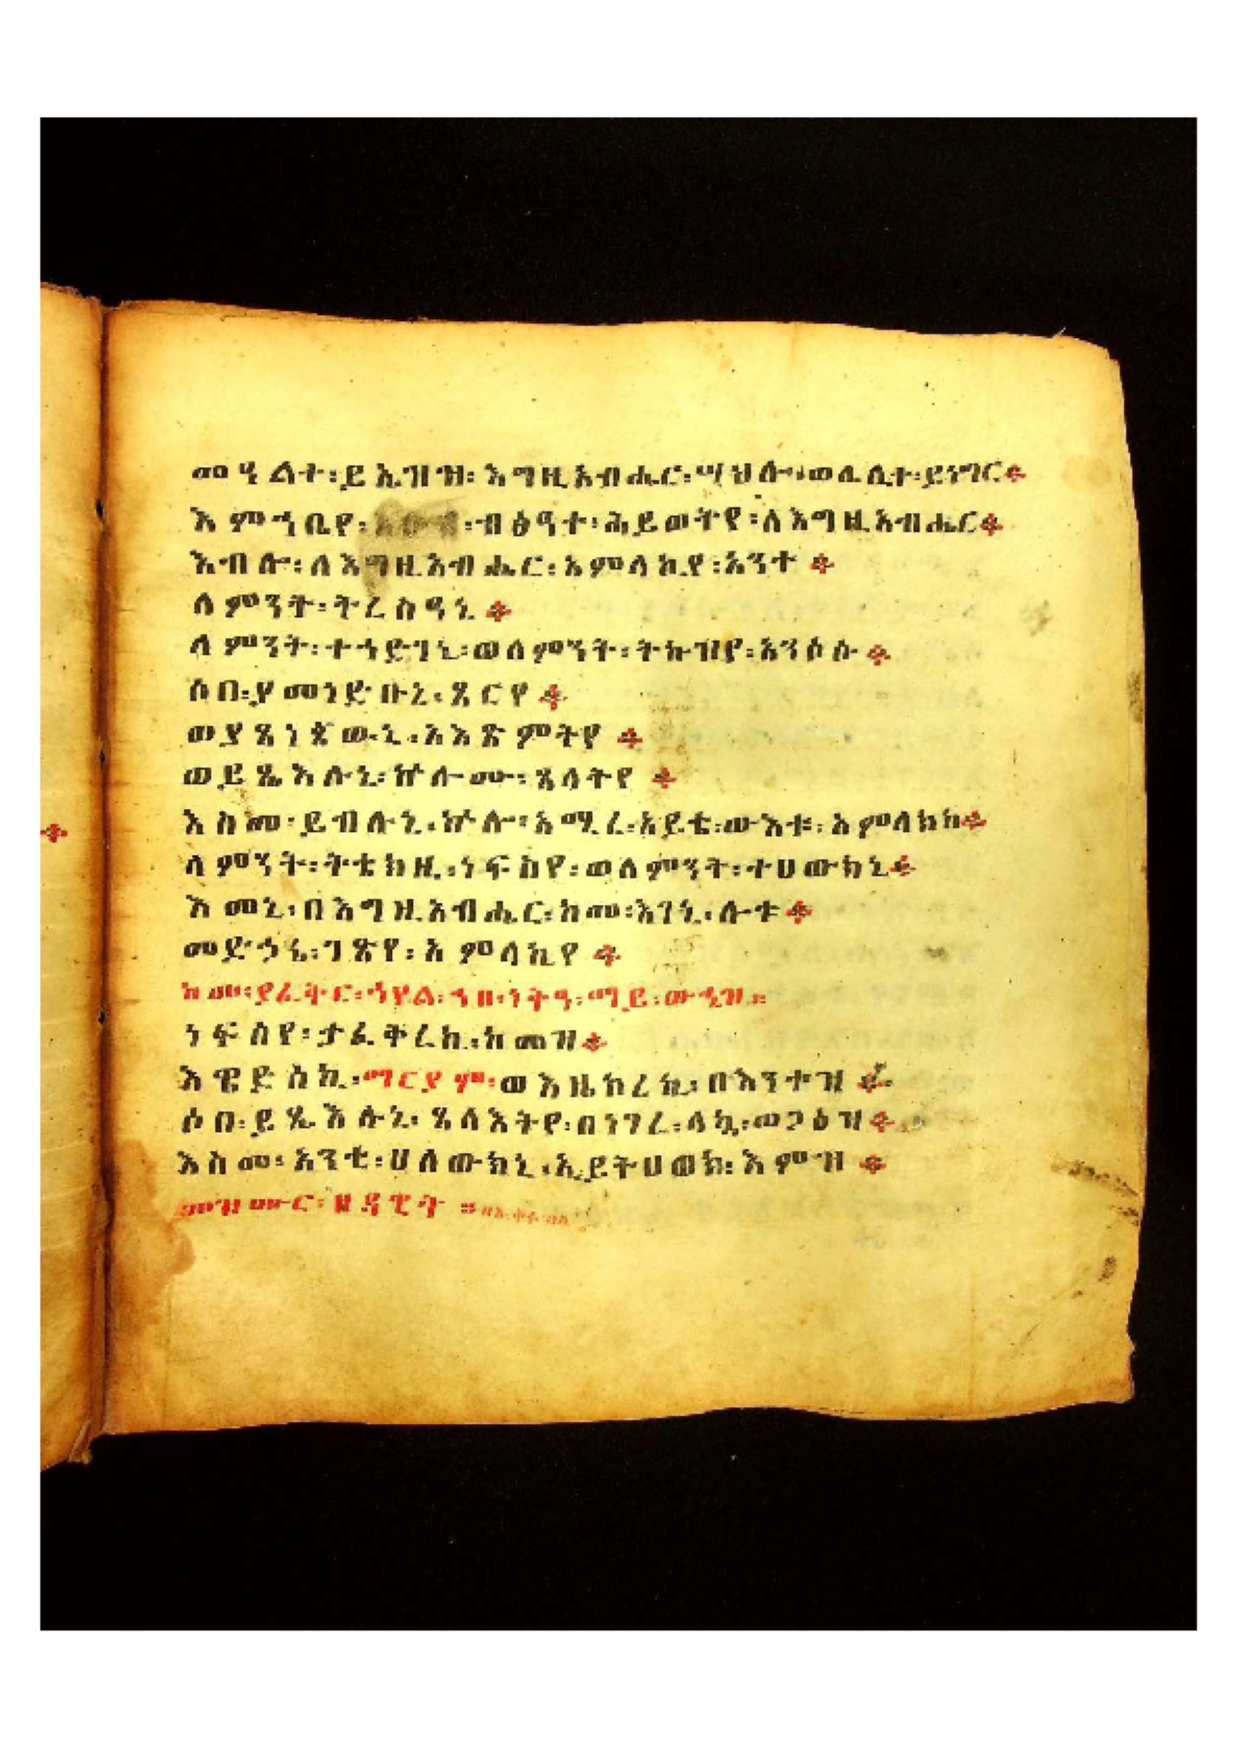 መዓልተ፡ይኤዝዝ፡እግዚአብሔር፡ሣህሎ፡ወሌሊተ፡ይነግር።
እምኀቤየ፡ብፅዓተ፡ሕይወትየ፡ለእግዚአብሔር።
እብሎ፡ለእግዚአብሔር፡አምላኪየ፡አንተ።
ለምንት፡ትረስዓኒ።
ለምንት፡ተኀድገኒ፡ወለምንት፡ትኩዝየ፡አንሶሱ።
ሶበ፡ያመነድቡኒ፡ጸርየ።
ወያጸነጽውኒ፡አእጽምትየ።
ወይጼእሉኒ፡ኵሎሙ፡ጸላትየ።
እስመ፡ይብሉኒ፡ኵሎ፡አሚረ፡አይቴ፡ውእቱ፡አምላክከ።
ለምንት፡ትቴክዚ፡ነፍስየ፡ወለምንት፡ተሀውክኒ።
እመኒ፡በእግዚአብሔር፡ከመ፡እገኒ፡ሎቱ።
መድኃኔ፡ገጽየ፡አምላኪየ።
ከመ፡ያፈቅር፡ኀየል፡ኀበ፡ነቅዓ፡ማይ፡ውኂዝ።
ነፍስየ፡ታፈቅረኪ፡ከመዝ።
እዌድስኪ፡ማርያም፡ወእዜከረኪ፡በእንተዝ።
ሶበ፡ይጼእሉኒ፡ጸላእትየ፡በነገረ፡ላኳ፡ወጋዕዝ።
እስመ፡አንቲ፡ሀለውክኒ፡ኢይትሀወክ፡እምዝ።
መዝሙር፡ዘዳዊት።